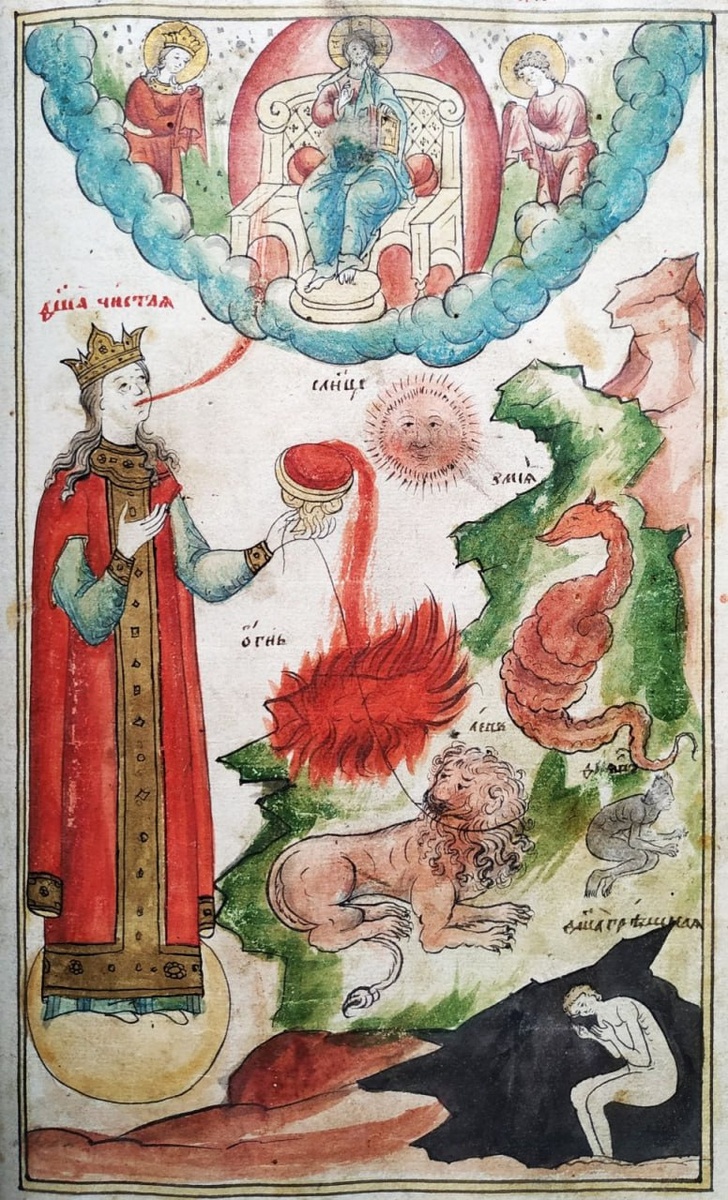 дш҃а чистаѧ
слн҃це
змїѧ
огнь
левъ
дш҃а грѣшнаѧ